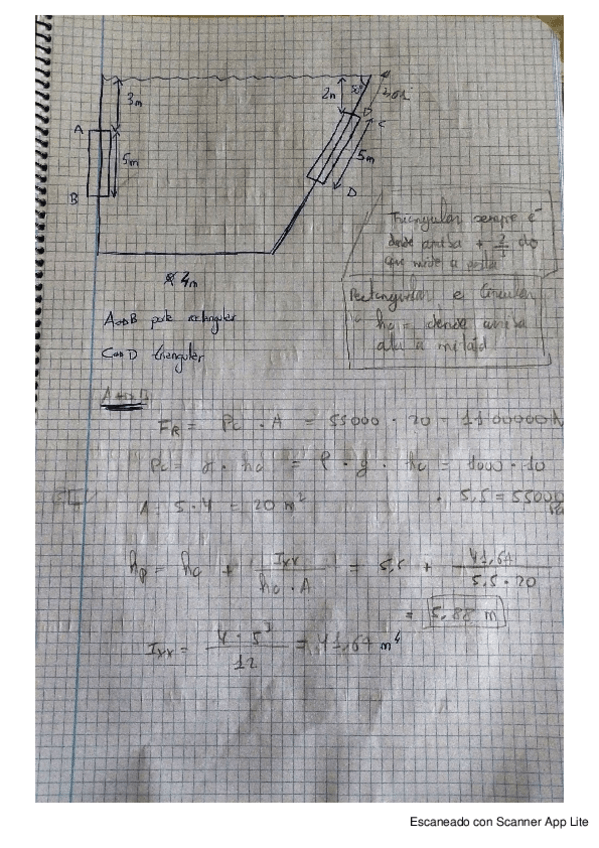 3m
2m
A
5m
C
5m
B
D
4m
Triangular sempre é
dende arriba + 2/3 do
que mide a
Rectangular e Circular
hc = dende arriba
ata a metad
A↔B porte rectangular
C↔D triangular
A↔B
FR = Pc · A = 55000 · 20 = 1100000N
Pc = γ · hc = ρ · g · hc = 1000 · 10
· 5,5 = 55000
A = 5 · 4 = 20 m²
hp = hc + Ixx / hc · A = 5,5 + 41,67 / 5,5 · 20
= 5,88 m
Ixx = 4 · 5³ / 12 = 41,67 m⁴
Escaneado con Scanner App Lite